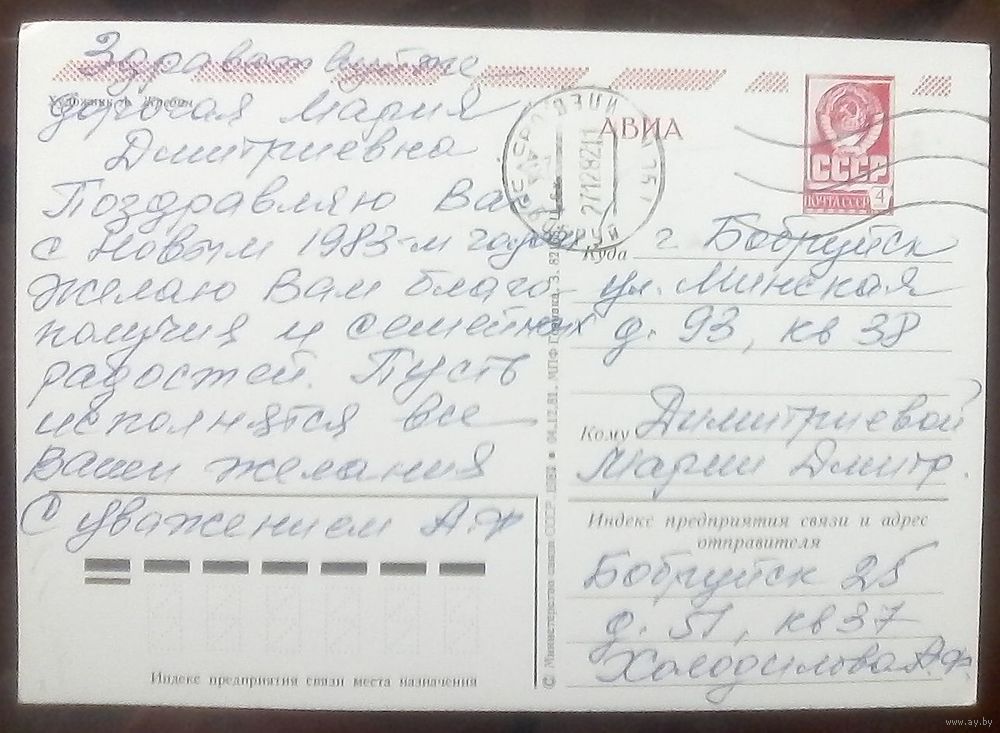 Здравствуйте
дорогая Мария
Дмитриевна
Поздравляю Вас
с Новым 1983-м годом
Желаю Вам благо-
получия и семейных
радостей. Пусть
исполнятся все
Ваши желания
С уважением А.Ф
Художник А.
АВИА
27128211
СССР
ПОЧТА СССР 4
Куда г Бобруйск
ул. Минская
д. 93, кв 38
Кому Димитриевой
Марии Дмитр.
Индекс предприятия связи и адрес
отправителя
Бобруйск 25
д. 51, кв 37
Холодилова А.Ф.
Индекс предприятия связи места назначения
© Министерство связи СССР. 04.12.81. МПФ Гознака. З. 82
www.ay.by